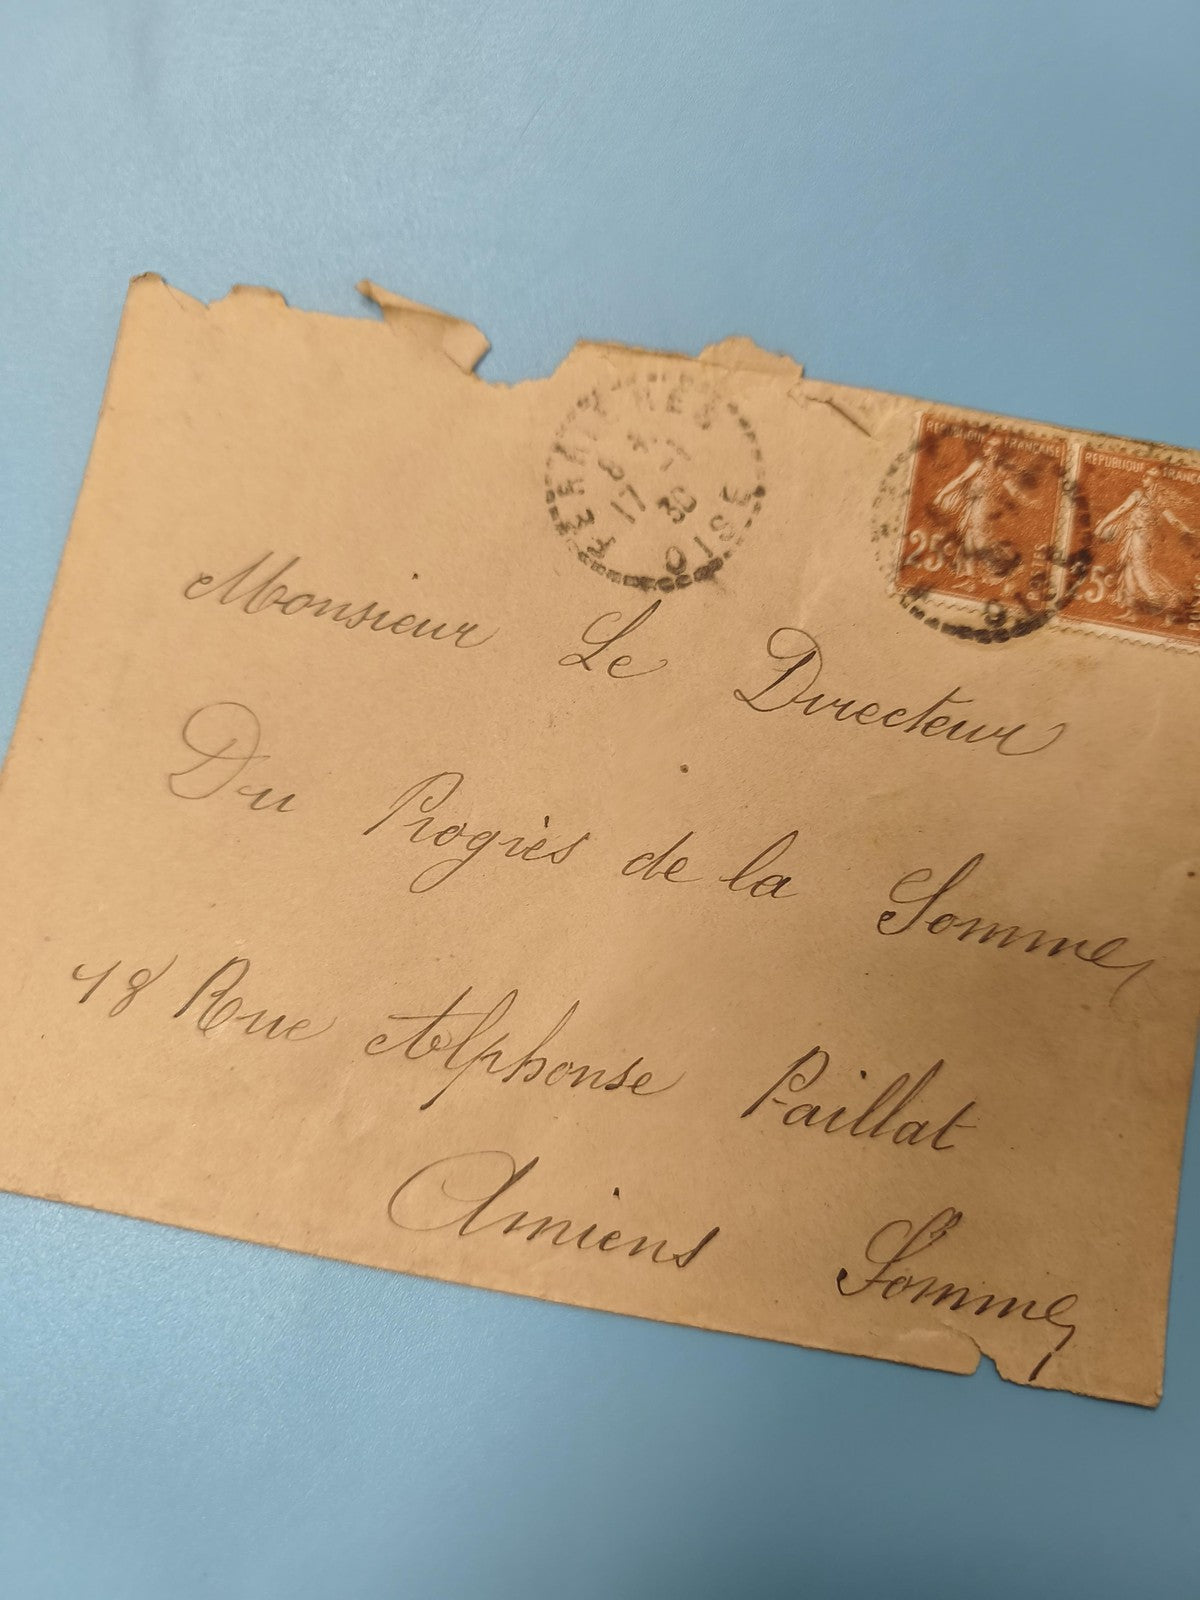 OISE
17
30
REPUBLIQUE FRANCAISE
25c
REPUBLIQUE
25c
OISE
Monsieur Le Directeur
Du Progrès de la Somme
18 Rue Alphonse Paillat
Amiens Somme